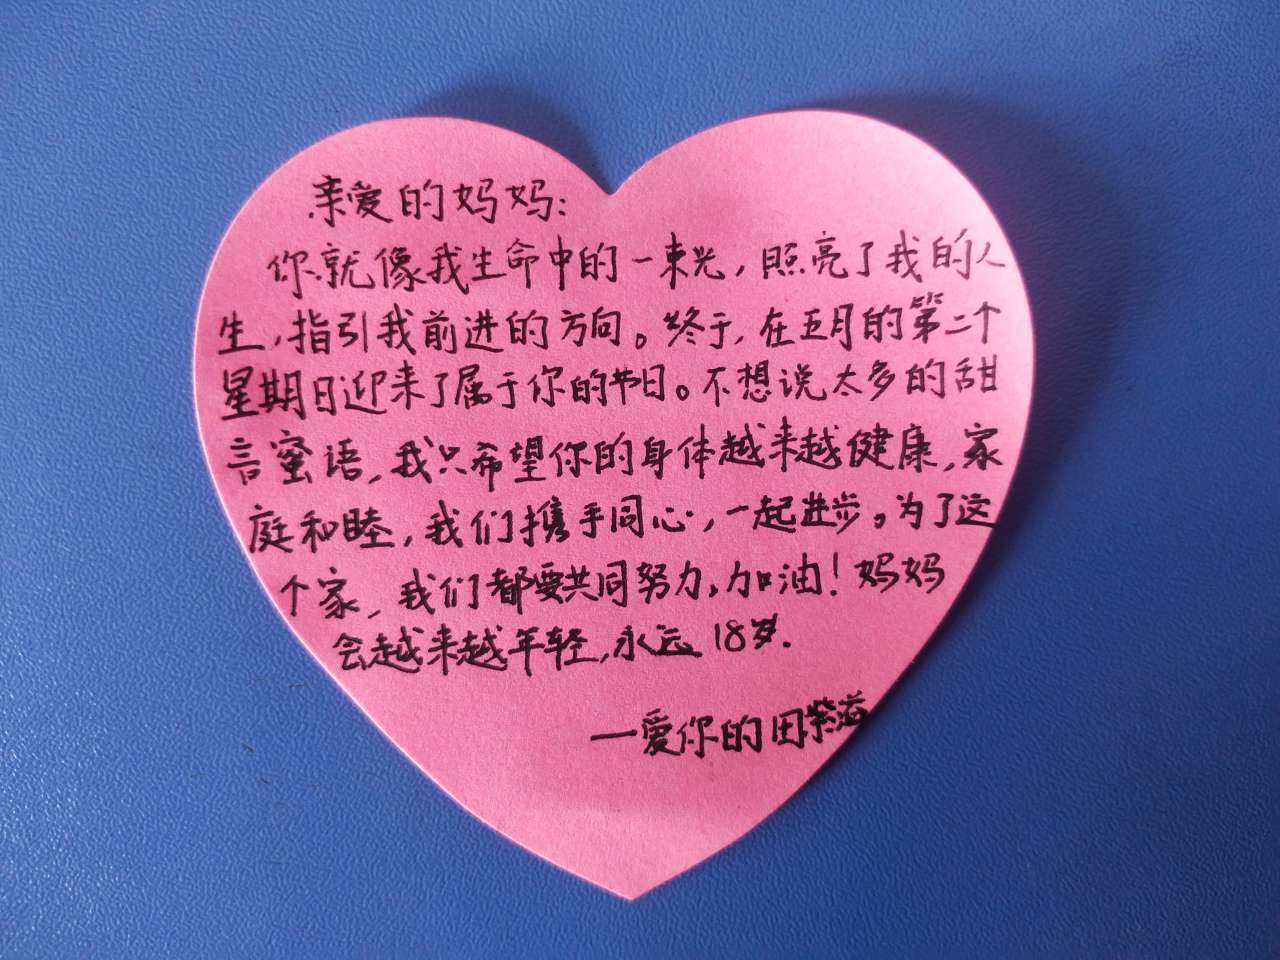 亲爱的妈妈:
你就像我生命中的一束光，照亮了我的人
生，指引我前进的方向。终于，在五月的第二个
星期日迎来了属于你的节日。不想说太多的甜
言蜜语，我只希望你的身体越来越健康，家
庭和睦，我们携手同心，一起进步。为了这
个家，我们都要共同努力，加油！妈妈
会越来越年轻，永远18岁.
—爱你的田紫滋